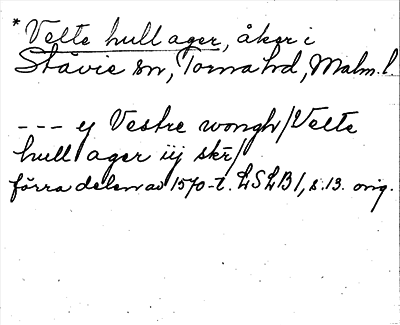 * Velte hull ager, åker i
Stävie sn, Torna hd, Malm. l.
--- y Vestre wongh/Velte
hull ager iij skr/
förra delen av 1570-t. LSLB 1, s. 13. orig.